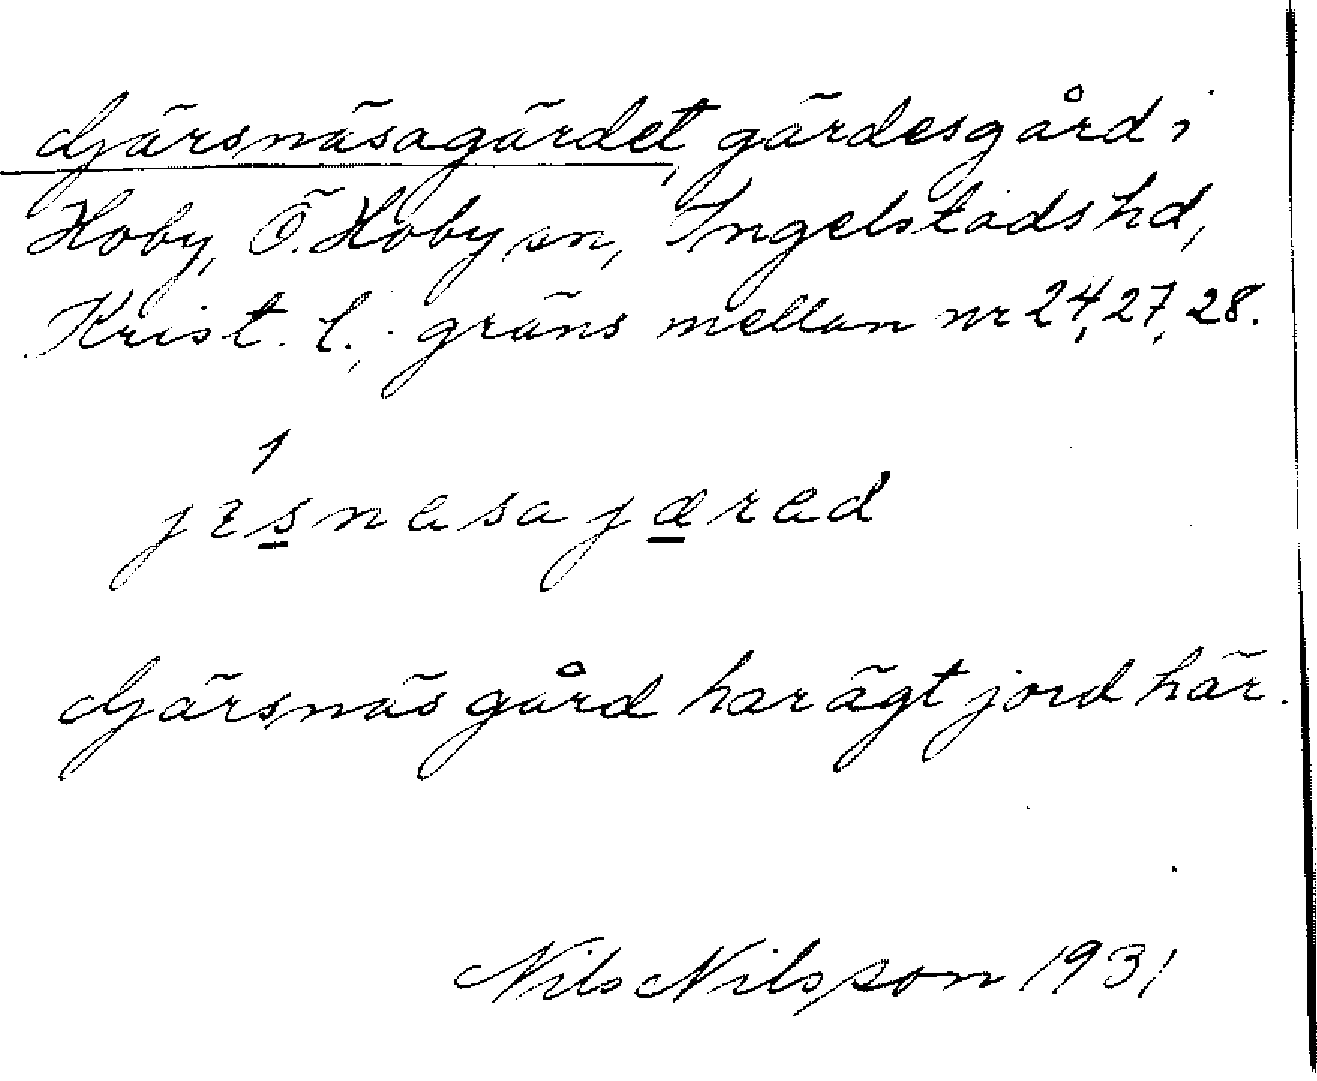 Gärsnäsagärdet, gärdesgård i
Hoby, Ö. Hoby sn, Ingelstads hd,
Krist. l.; gräns mellan nr 24, 27, 28.
Gärsnäs gård har ägt jord här.
Nils Nilsson 1931